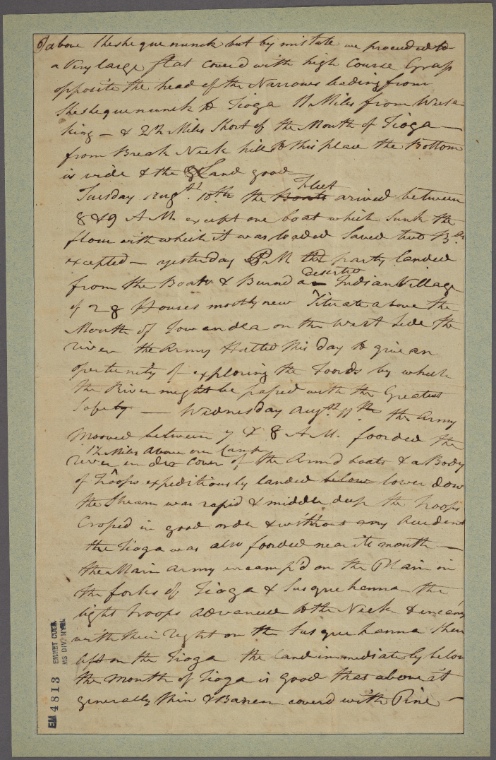 above Sheshequenunck but by mistake we proceeded to
a Very large flat cover'd with high Course Grass
opposite the head of the Narrows leading from
Sheshequenunck to Tioga 11 Miles from Wesa
king — & 2½ Miles Short of the Mouth of Tioga —
from Break Neck hill to this place the Bottom
is wide & the Land good
Tuesday Augst 10th the Boats Fleet arived between
8 & 9 A M except one boat which Sunk the
flour with which it was loaded Saved two Bls
excepted — yesterday P M the party landed
from the Boats & Burnd a deserted Indian Village
of 28 Houses mostly new Situate above the
Mouth of Gowandea on the West Side the
river the Army Halted this day to give an
opertunity of exploring the foords by which
the River might be passed with the Greatest
Safety — Wednesday Augst 11th the Army
mooved between 7 & 8 A.M. foorded the
1½ Miles above our Camp
river under Cover of the Armd boats & a Body
of Troops expeditiously landed below lower down
the Stream was rapid & middle deep the Troops
Crossed in good order & without any Accident
the Tioga was also foorded near its mouth —
the Main Army incamp'd on the Plain in
the forks of Tioga & Susquehanna the
light Troops advanced to the Neck & incamp
with their right on the Susquehanna their
left on the Tioga the land immediately below
the Mouth of Tioga is Good that above it
generally thin & Baren coverd with Pine —
EM 4813
EMMET COLL.
MS DIV. NYPL